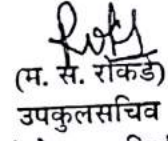 (म. स. रोकडे)
उपकुलसचिव